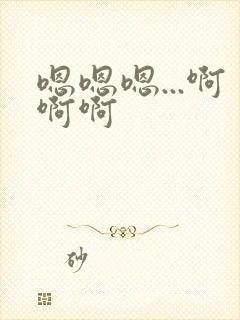 嗯嗯嗯...啊
啊啊
砂